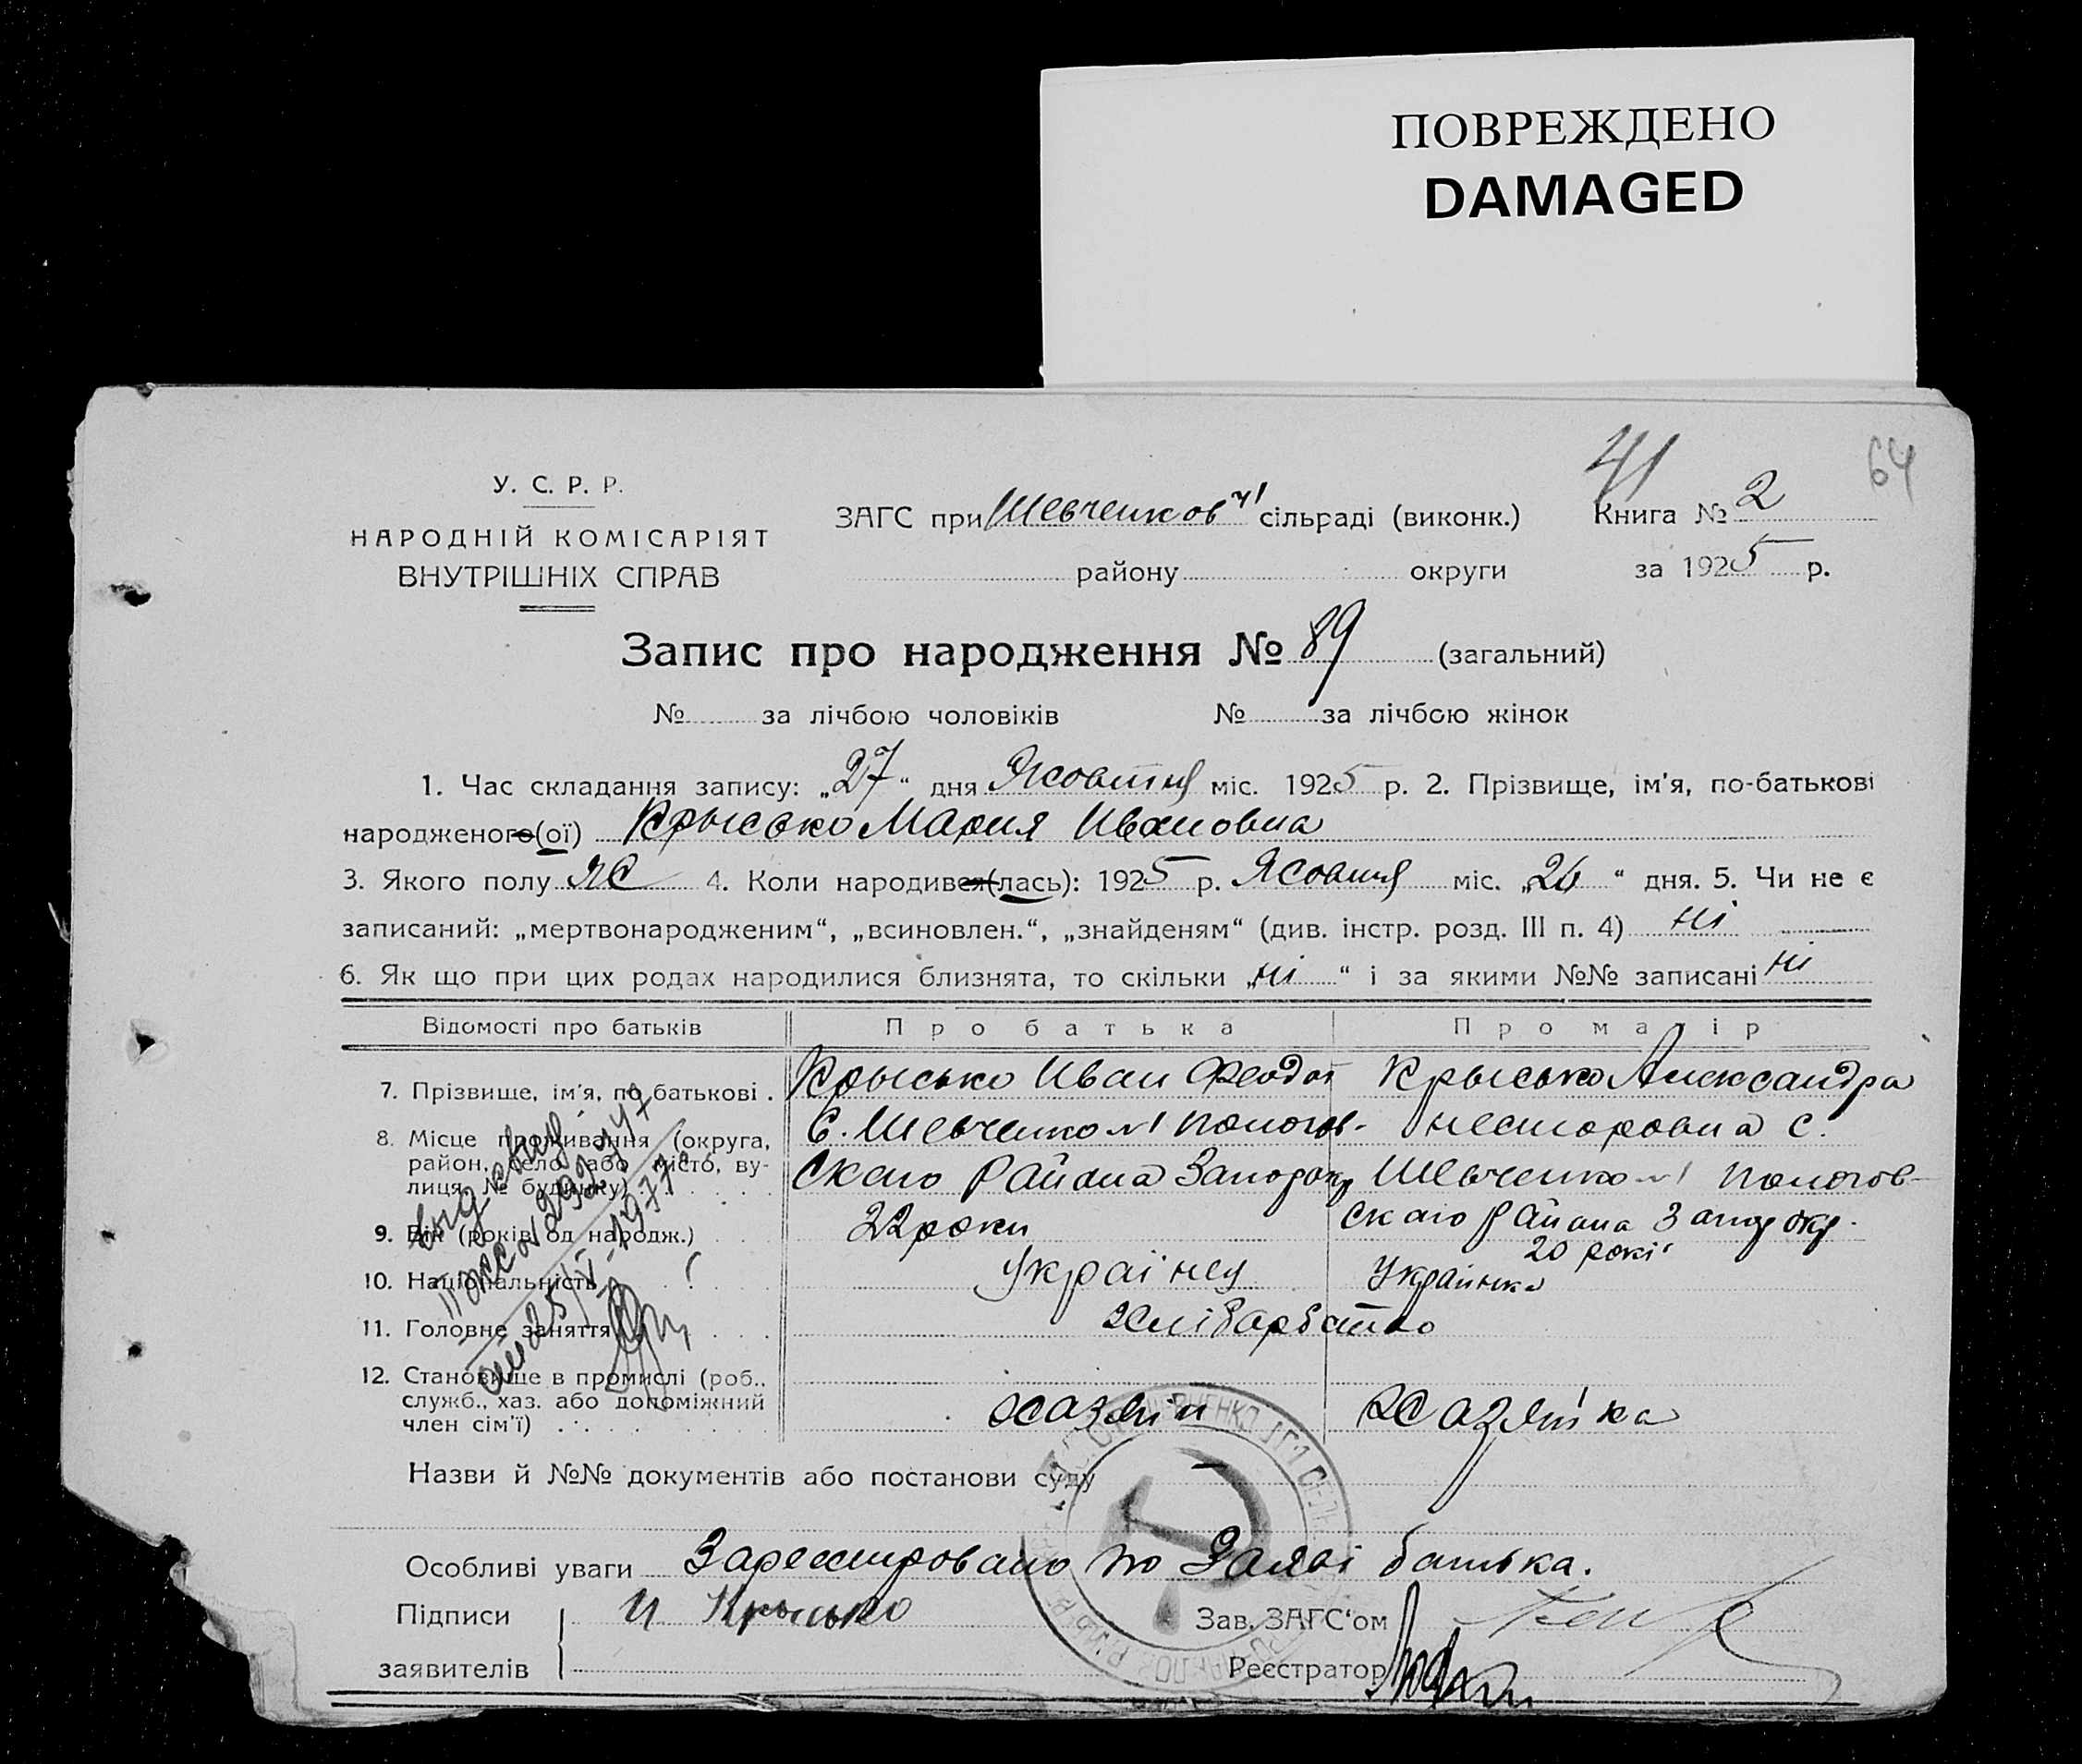 ПОВРЕЖДЕНО
DAMAGED
41
64
У. С. Р. Р.
НАРОДНІЙ КОМІСАРІЯТ
ВНУТРІШНІХ СПРАВ
ЗАГС при Шевченков №1 сільраді (виконк.)
району округи
Книга № 2
за 1925 р.
Запис про народження № 89 (загальний)
№ за лічбою чоловіків № за лічбою жінок
1. Час складання запису: „27“ дня Жовтня міс. 1925 р. 2. Прізвище, ім'я, по-батькові
народженого(ої) Крысько Мария Ивановна
3. Якого полу Ж 4. Коли народився(лась): 1925 р. Жовтня міс. „26“ дня. 5. Чи не є
записаний: „мертвонародженим“, „всиновлен.“, „знайденям“ (див. інстр. розд. III п. 4) ні
6. Як що при цих родах народилися близнята, то скільки „ні“ і за якими №№ записані ні
Відомості про батьків Про батька Про матір
7. Прізвище, ім'я, по батькові . Крысько Иван Феодот Крысько Александра
8. Місце проживання (округа, район, село або місто, вулиця, № будинку) С. Шевченко №1 Пологов- Несторовна С.
ского Района Запорокр Шевченко №1 Пологов-
ского Района Запор окр.
9. Вік (років од народж.) 22 роки 20 років
10. Національність Українец Українка
11. Головне заняття хліборобство
12. Становище в промислі (роб., служб., хаз. або допоміжний член сім'ї) хазяїн хазяйка
выд. свид.
от 25/V-1977
Назви й №№ документів або постанови суду —
Особливі уваги Зарегистровано по Заяві батька.
Підписи И Крысько Зав. ЗАГС'ом
заявителів Реєстратор